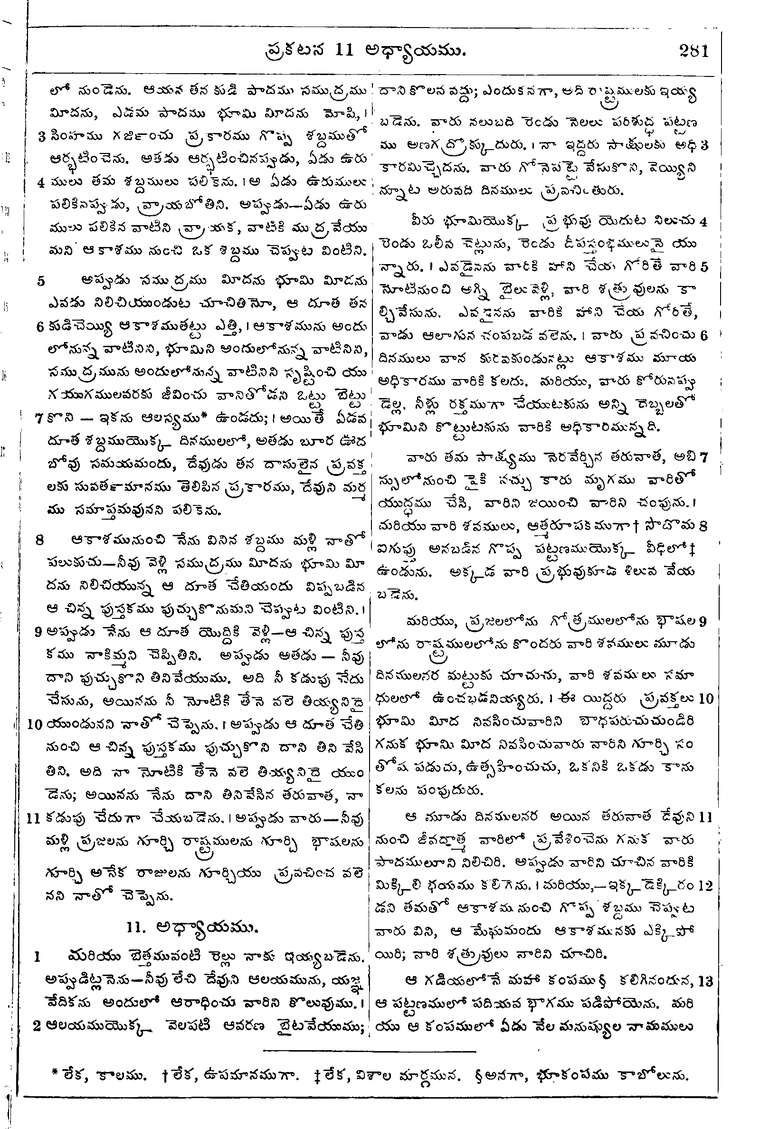 ప్రకటన 11 అధ్యాయము. 281
లో నుండెను. ఆయన తన కుడి పాదము సముద్రము
మీదను, ఎడమ పాదము భూమి మీదను మోపి,।
3 సింహము గర్జించు ప్రకారము గొప్ప శబ్దముతో
ఆర్భటించెను. అతడు ఆర్భటించినప్పుడు, ఏడు ఉరు
4 ములు తమ శబ్దములు పలికెను.। ఆ ఏడు ఉరుములు
పలికినప్పుడు, వ్రాయబోతిని. అప్పుడు—ఏడు ఉరు
ములు పలికిన వాటిని వ్రాయక, వాటికి ముద్రవేయు
మని ఆకాశము నుంచి ఒక శబ్దము చెప్పుట వింటిని.
5 అప్పుడు సముద్రము మీదను భూమి మీదను
ఎవడు నిలిచియుండుట చూచితినో, ఆ దూత తన
6 కుడిచెయ్యి ఆకాశముతట్టు ఎత్తి,। ఆకాశమును అందు
లోనున్న వాటినిని, భూమిని అందులోనున్న వాటినిని,
సముద్రమును అందులోనున్న వాటినిని సృష్టించి యు
గయుగములవరకు జీవించు వానితోడని ఒట్టు బెట్టు
7 కొని — ఇకను ఆలస్యము* ఉండదు;। అయితే ఏడవ
దూత శబ్దముయొక్క దినములలో, అతడు బూర ఊద
బోవు సమయమందు, దేవుడు తన దాసులైన ప్రవక్త
లకు సువర్తమానము తెలిపిన ప్రకారము, దేవుని మర్మ
ము సమాప్తమవునని పలికెను.
8 ఆకాశమునుంచి నేను వినిన శబ్దము మళ్లి నాతో
పలుకుచు—నీవు వెళ్లి సముద్రము మీదను భూమి మీ
దను నిలిచియున్న ఆ దూత చేతియందు విప్పబడిన
ఆ చిన్న పుస్తకము పుచ్చుకొనుమని చెప్పుట వింటిని.।
9 అప్పుడు నేను ఆ దూత యొద్దికి వెళ్లి—ఆ చిన్న పుస్త
కము నాకిమ్మని చెప్పితిని. అప్పుడు అతడు — నీవు
దాని పుచ్చుకొని తినివేయుము. అది నీ కడుపు చేదు
చేసును, అయినను నీ నోటికి తేనె వలె తియ్యనిదై
10 యుండునని నాతో చెప్పెను.। అప్పుడు ఆ దూత చేతి
నుంచి ఆ చిన్న పుస్తకము పుచ్చుకొని దాని తిని వేసి
తిని. అది నా నోటికి తేనె వలె తియ్యనిదై యుం
డెను; అయినను నేను దాని తినివేసిన తరువాత, నా
11 కడుపు చేదుగా చేయబడెను.। అప్పుడు వారు—నీవు
మళ్లి ప్రజలను గూర్చి రాష్ట్రములను గూర్చి భాషలను
గూర్చి అనేక రాజులను గూర్చియు ప్రవచించ వలె
నని నాతో చెప్పెను.
11. అధ్యాయము.
1 మరియు బెత్తమువంటి రెల్లు నాకు ఇయ్యబడెను.
అప్పుడిట్లనెను—నీవు లేచి దేవుని ఆలయమును, యజ్ఞ
వేదికను అందులో ఆరాధించు వారిని కొలువుము.।
2 ఆలయముయొక్క వెలపటి ఆవరణ బైటవేయుము;
దాని కొలన వద్దు; ఎందుకనగా, అది రాష్ట్రములకు ఇయ్య
బడెను. వారు నలుబది రెండు నెలలు పరిశుద్ధ పట్టణ
ము అణగద్రొక్కుదురు.। నా ఇద్దరు సాక్షులకు అధి 3
కారమిచ్చెదను. వారు గోనెపట్టె వేసుకొని, వెయ్యిని
న్నూట అరువది దినములు ప్రవచింతురు.
వీరు భూమియొక్క ప్రభువు యెదుట నిలుచు 4
రెండు ఒలీవ చెట్లును, రెండు దీపస్తంభములునై యు
న్నారు.। ఎవడైనను వారికి హాని చేయ గోరితే వారి 5
నోటినుంచి అగ్ని బైలువెళ్లి, వారి శత్రువులను కా
ల్చివేసును. ఎవడైనను వారికి హాని చేయ గోరితే,
వాడు ఆలాగున చంపబడ వలెను.। వారు ప్రవచించు 6
దినములు వాన కురవకుండునట్లు ఆకాశము మూయ
అధికారము వారికి కలదు. మరియు, వారు కోరునప్పు
డెల్ల, నీళ్లు రక్తముగా చేయుటకును అన్ని దెబ్బలతో
భూమిని కొట్టుటకును వారికి అధికారమున్నది.
వారు తమ సాక్ష్యము నెరవేర్చిన తరువాత, అబి 7
స్సులోనుంచి పైకి వచ్చు కారు మృగము వారితో
యుద్ధము చేసి, వారిని జయించి వారిని చంపును.।
మరియు వారి శవములు, ఆత్మరూపకముగా† సొదొమ 8
ఐగుప్తు అనబడిన గొప్ప పట్టణముయొక్క వీధిలో‡
ఉండును. అక్కడ వారి ప్రభువుకూడ శిలువ వేయ
బడెను.
మరియు, ప్రజలలోను గోత్రములలోను భాషల 9
లోను రాష్ట్రములలోను కొందరు వారి శవములు మూడు
దినములనర మట్టుకు చూచుచు, వారి శవములు సమా
ధులలో ఉంచబడనియ్యరు.। ఈ యిద్దరు ప్రవక్తలు 10
భూమి మీద నివసించువారిని బాధపరుచుచుండిరి
గనుక భూమి మీద నివసించువారు వారిని గూర్చి సం
తోష పడుచు, ఉత్సహించుచు, ఒకనికి ఒకడు కాను
కలను పంపుదురు.
ఆ మూడు దినములనర అయిన తరువాత దేవుని 11
నుంచి జీవాత్మ వారిలో ప్రవేశించెను గనుక వారు
పాదములూని నిలిచిరి. అప్పుడు వారిని చూచిన వారికి
మిక్కిలి భయము కలిగెను.। మరియు,—ఇక్కడెక్కిరం 12
డని తమతో ఆకాశము నుంచి గొప్ప శబ్దము చెప్పుట
వారు విని, ఆ మేఘమందు ఆకాశమునకు ఎక్కిపో
యిరి; వారి శత్రువులు వారిని చూచిరి.
ఆ గడియలోనే మహా కంపము§ కలిగినందున, 13
ఆ పట్టణములో పదియవ భాగము పడిపోయెను. మరి
యు ఆ కంపములో ఏడు వేల మనుష్యుల నామములు
* లేక, కాలము. † లేక, ఉపమానముగా. ‡ లేక, విశాల మార్గమున. § అనగా, భూకంపము కాబోలును.